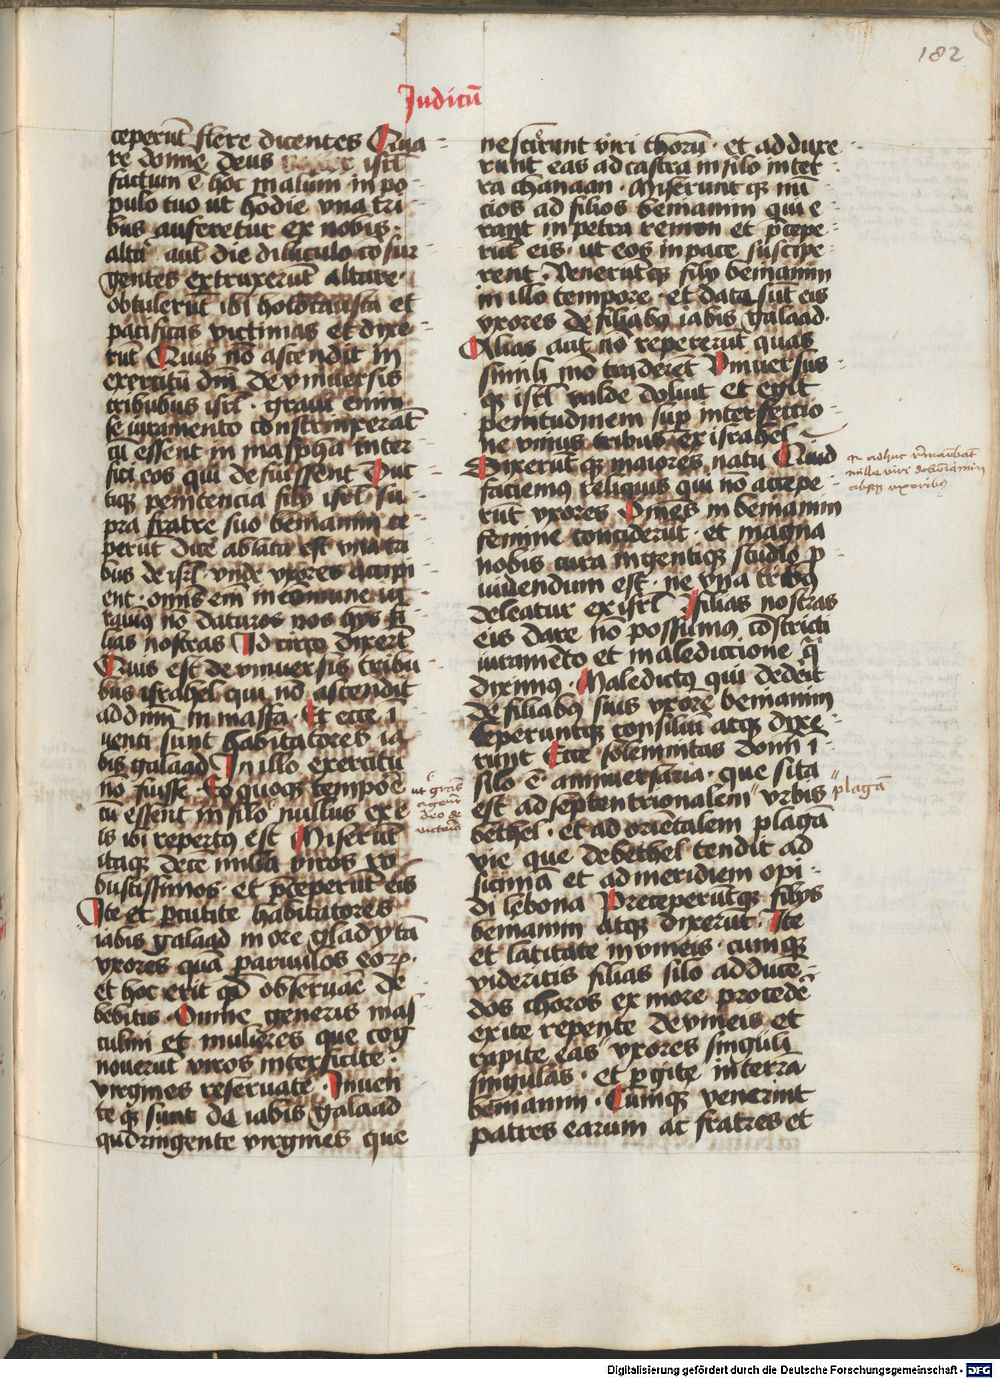 182
Judicũ
ceperũt flere dicentes Qua
re domine deus isrl
factum ẽ hoc malum in po
pulo tuo ut hodie vna tri
bus auferetur ex nobis ·
altã autẽ die diluculo cõsur
gentes extruxerũt altare ·
obtulerũt ibi holocausta et
pacificas victimas et dixe
rũt Quis nõ ascendit in
exercitũ dñi de vniuersis
tribubus isrl · graui enim
se iuramento constrinxerãt
cũ essent in maspha inter
fici eos qui defuissent Duc
tiqz penitencia filij isrl su
pra fratre suo beniamin ce
perũt dice ablata est vna tri
bus de isrl · vnde vxores accipi
ent · omẽs em̃ in comune iu
rauim9 nõ daturos nos hijs fi
lias nostras Idcirco dixerũt
Quis est de vniuersis tribu
bus israhel qui nõ ascendit
ad dñm in massa · Et ecce i
uenti sunt habitatores ia
bis galaad In illo exercitu
nõ fuisse · Eo quoqz tempoẽ
cũ essent in silo nullus ex e
is ibi repertus est Miserũt
itaqz decẽ milia viros ro
bustissimos · et p̃ceperũt eis
Ite et pcutite habitatores
iabis galaad in ore gladij tã
vxores quã paruulos eorꝝ ·
et hoc erit qd obseruãe de
bebitis · Omne generis mas
culini et mulieres que cog
nouerũt viros interficite ·
virgines reseruate · Inuen
teqz sunt de iabis galaad
qudringente virgines que
nescierunt viri thorũ · et adduxe
runt eas ad castra in silo in ter
ra chanaan · Miseruntqz nũ
cios ad filios beniamin qui e
rant in petra remon et p̃cepe
rũt eis · ut eos in pace suscipe
rent · Veneruntqz filij beniamin
in illo tempore · et data sũt eis
vxores de filiab9 iabis galaad ·
Alias aut nõ repererũt quas
simili mõ traderẽt Vniuersus
qz isrl valde doluit et egit
penitudinem sup interfectio
ne vnius tribus ex israhel
Dixerũtqz maiores natu Quid
faciem9 reliquis qui nõ accepe
rũt vxores Omes in beniamin
femine conciderũt · et magna
nobis cura ingentiqz studio p
uidendum est · ne vna trib9
deleatur ex isrl Filias nostras
eis dare nõ possum9 cõstricti
iuramẽto et maledictione q̃
dixim9 · Maledict9 qui dederit
de filiab9 suis vxorẽ beniamin
Ceperuntqz consiliũ atqz dixe
runt Ecce solemnitas domini i
silo ẽ anniuersaria · que sita
est ad septentrionalem vrbis
bethel · et ad oriẽtalem plagã
vie que de bethel tendit ad
sicimã et ad meridiem opi
di lebona Preceperũtqz filijs
beniamin atqz dixerũt · Ite
et latitate in vineis · cumqz
videritis filias silo ad ducẽ
dos choros ex more procedẽ
exite repente de vineis et
rapite eas vxores singuli
singulas · et pgite in terrã
beniamin · Cumqz venerint
patres earum ac fratres et
ut grãs
agent
deo de
victoria
qz adhuc remãebãt
mille viri de beniamin
absqz vxorib9
plagã
Digitalisierung gefördert durch die Deutsche Forschungsgemeinschaft - DFG